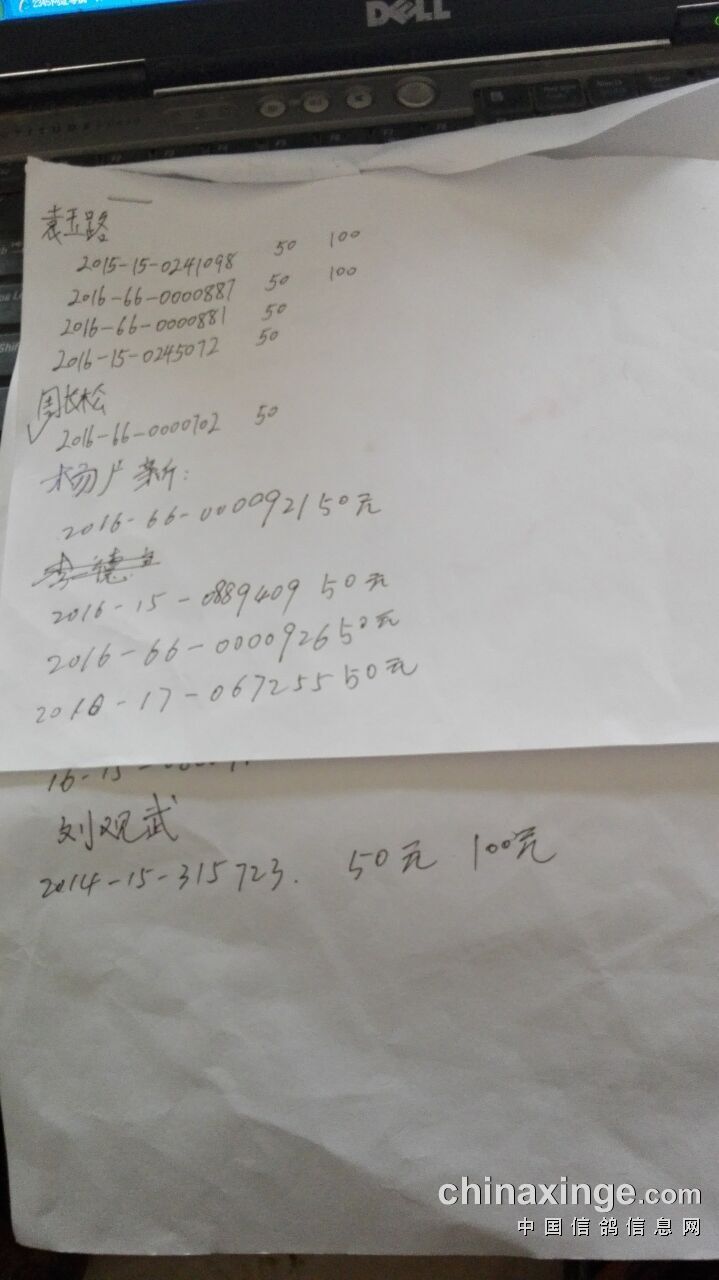 DELL
袁玉路
2015-15-0241098 50 100
2016-66-0000887 50 100
2016-66-0000881 50
2016-15-0245072 50
周长松
2016-66-0000702 50
杨广新:
2016-66-0000921 50元
李德立
2016-15-0889409 50元
2016-66-0000926 50元
2016-17-067255 50元
16-15-
刘观武
2014-15-315723. 50元 100元
chinaxinge.com
中国信鸽信息网